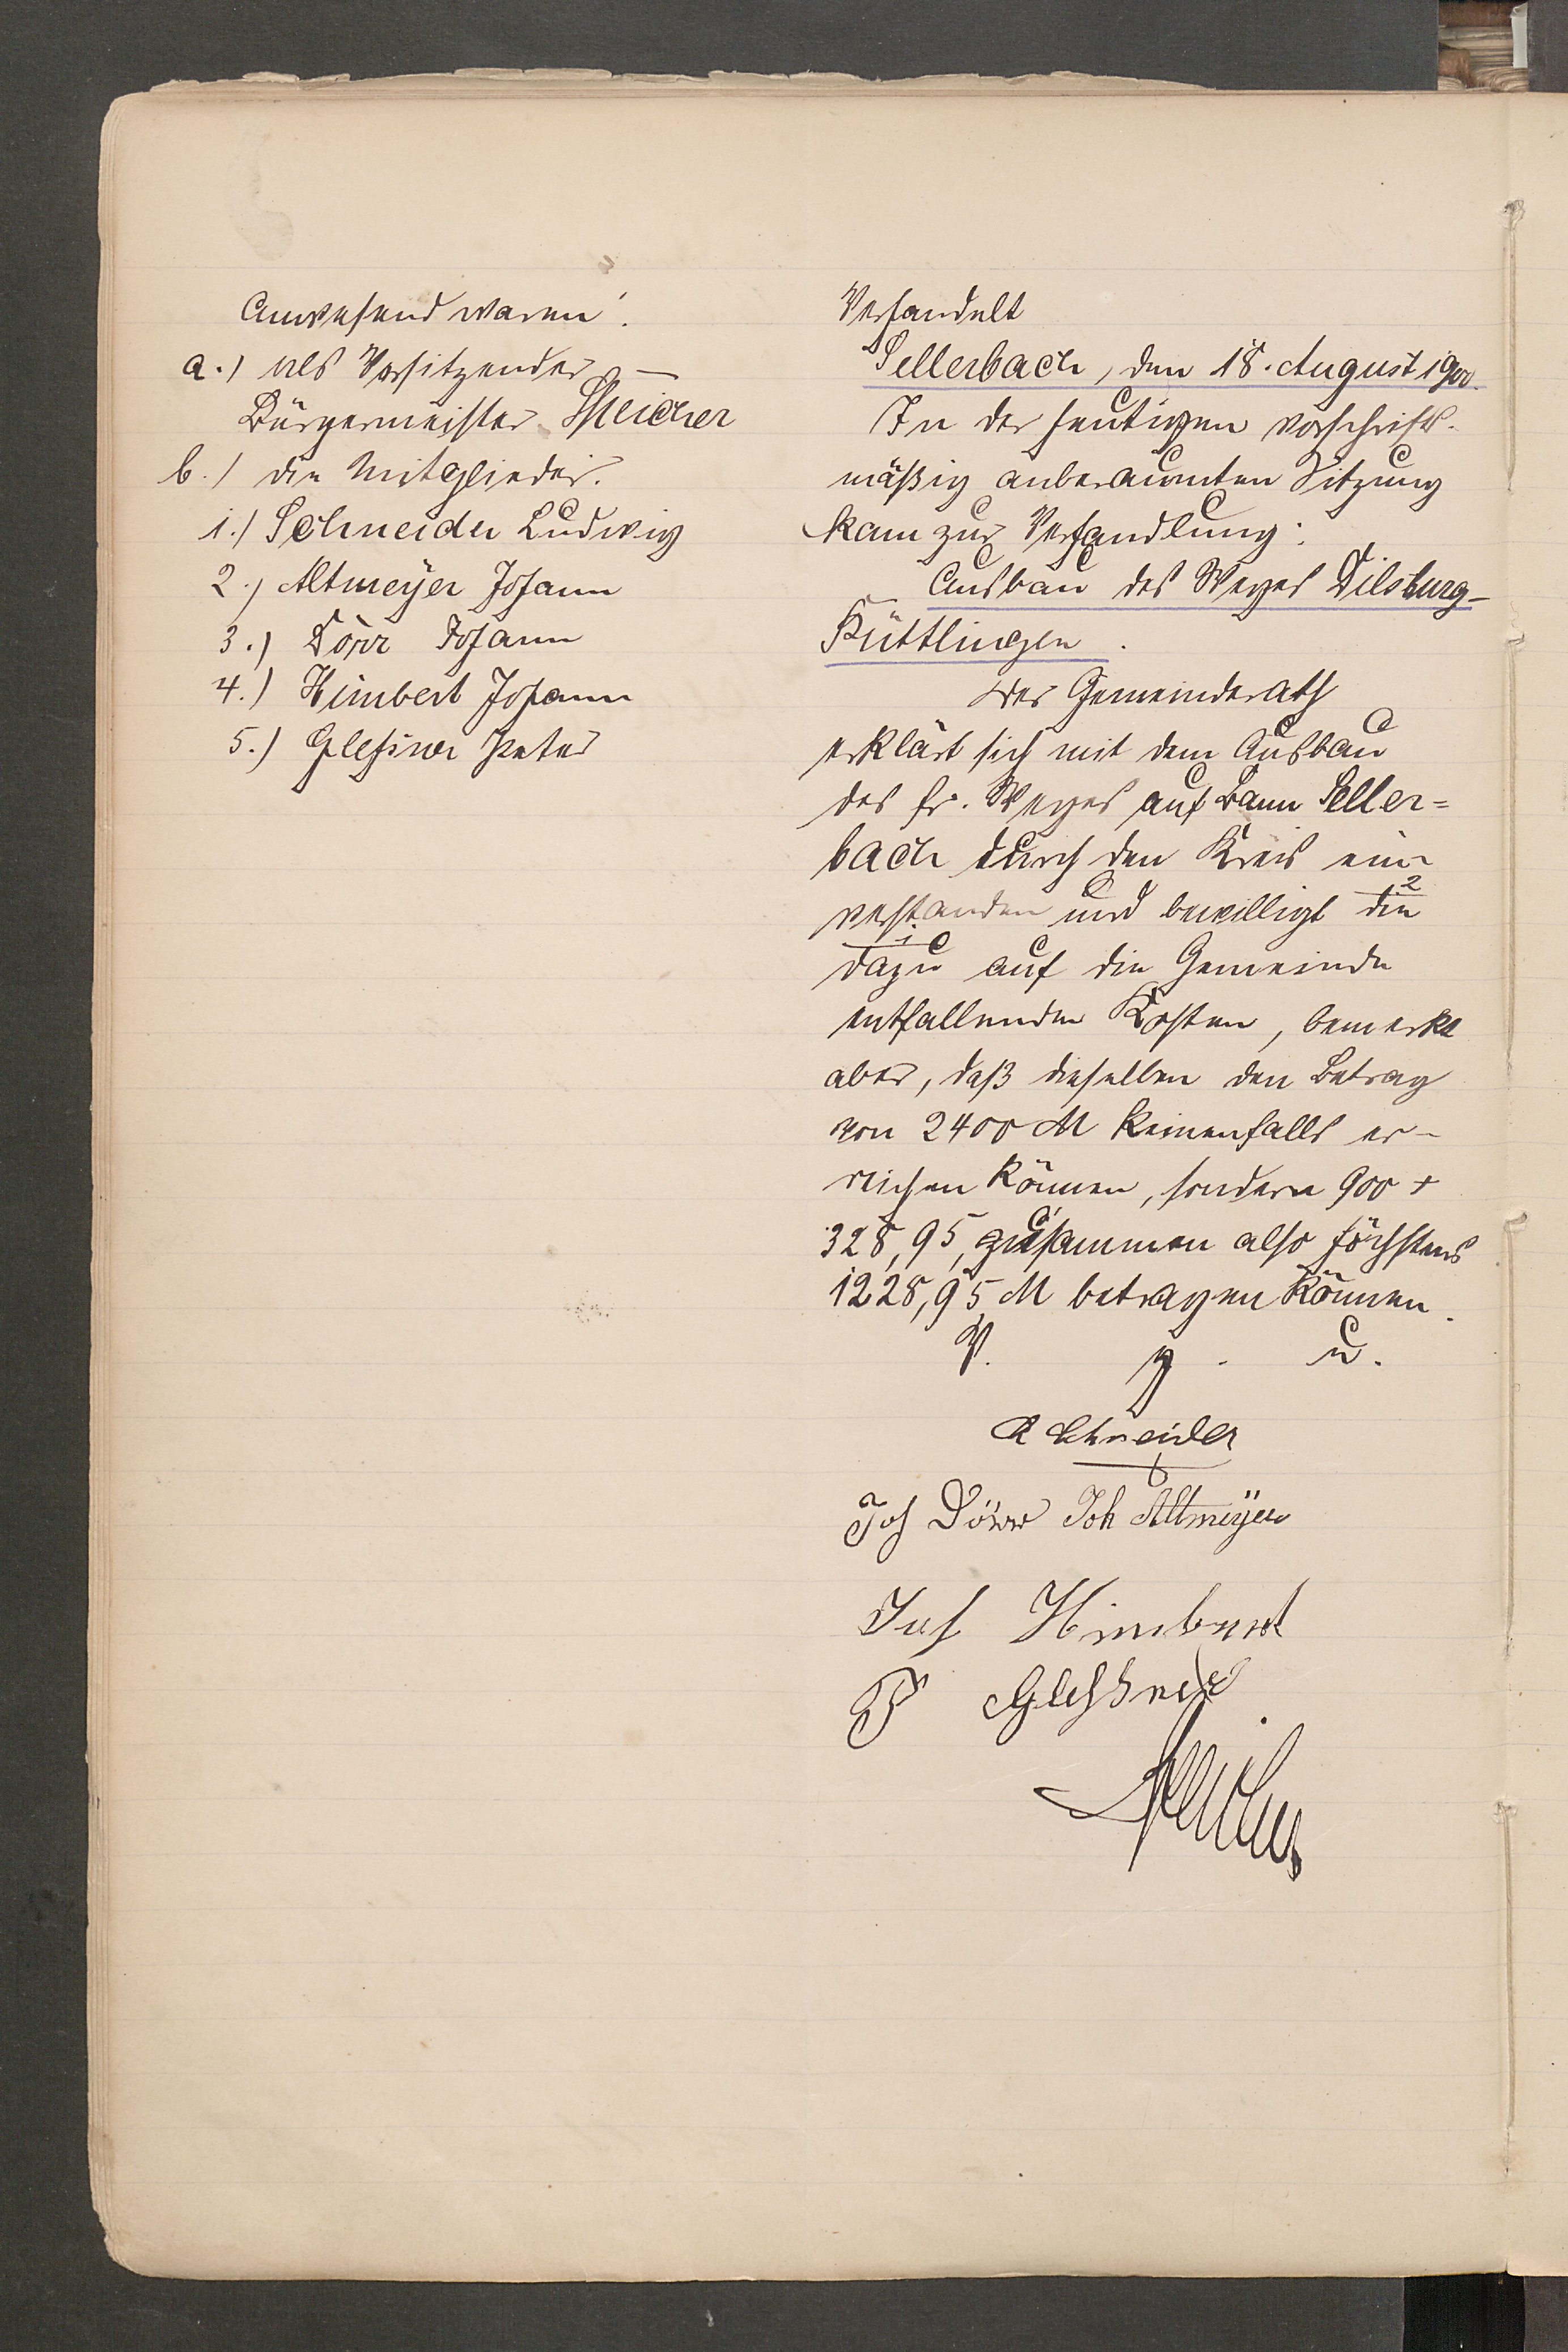 Anwesend waren:
a.) als Vorsitzender –
Bürgermeister Speicher
b.) die Mitglieder.
1.) Schneider Ludwig
2.) Altmeÿer Johann
3.) Dörr Johann
4.) Himbert Johann
5.) Glesner Peter
Verhandelt
Sellerbach, den 18. August 1900.
In der heutigen vorschrifts-
mäßig anberaumten Sitzung
kam zur Verhandlung:
Ausbau des Weges Dilsburg-
Püttlingen.
Der Gemeinderath
erklärt sich mit dem Ausbau
des fr. Weges auf Bann Seller=
bach durch den Kreis ein-
verstanden und bewilligt die
dazu auf die Gemeinde
entfallenden Kosten, bemerkt
aber, daß dieselben den Betrag
von 2400 M keinenfalls er-
reichen können, sondern 900 +
328,95, zusammen also höchstens
1228,95 M betragen können.
V. g. u.
L Schneider
Joh Dörr Joh Altmeÿer
Joh Himbert
P Gleßner
Speicher